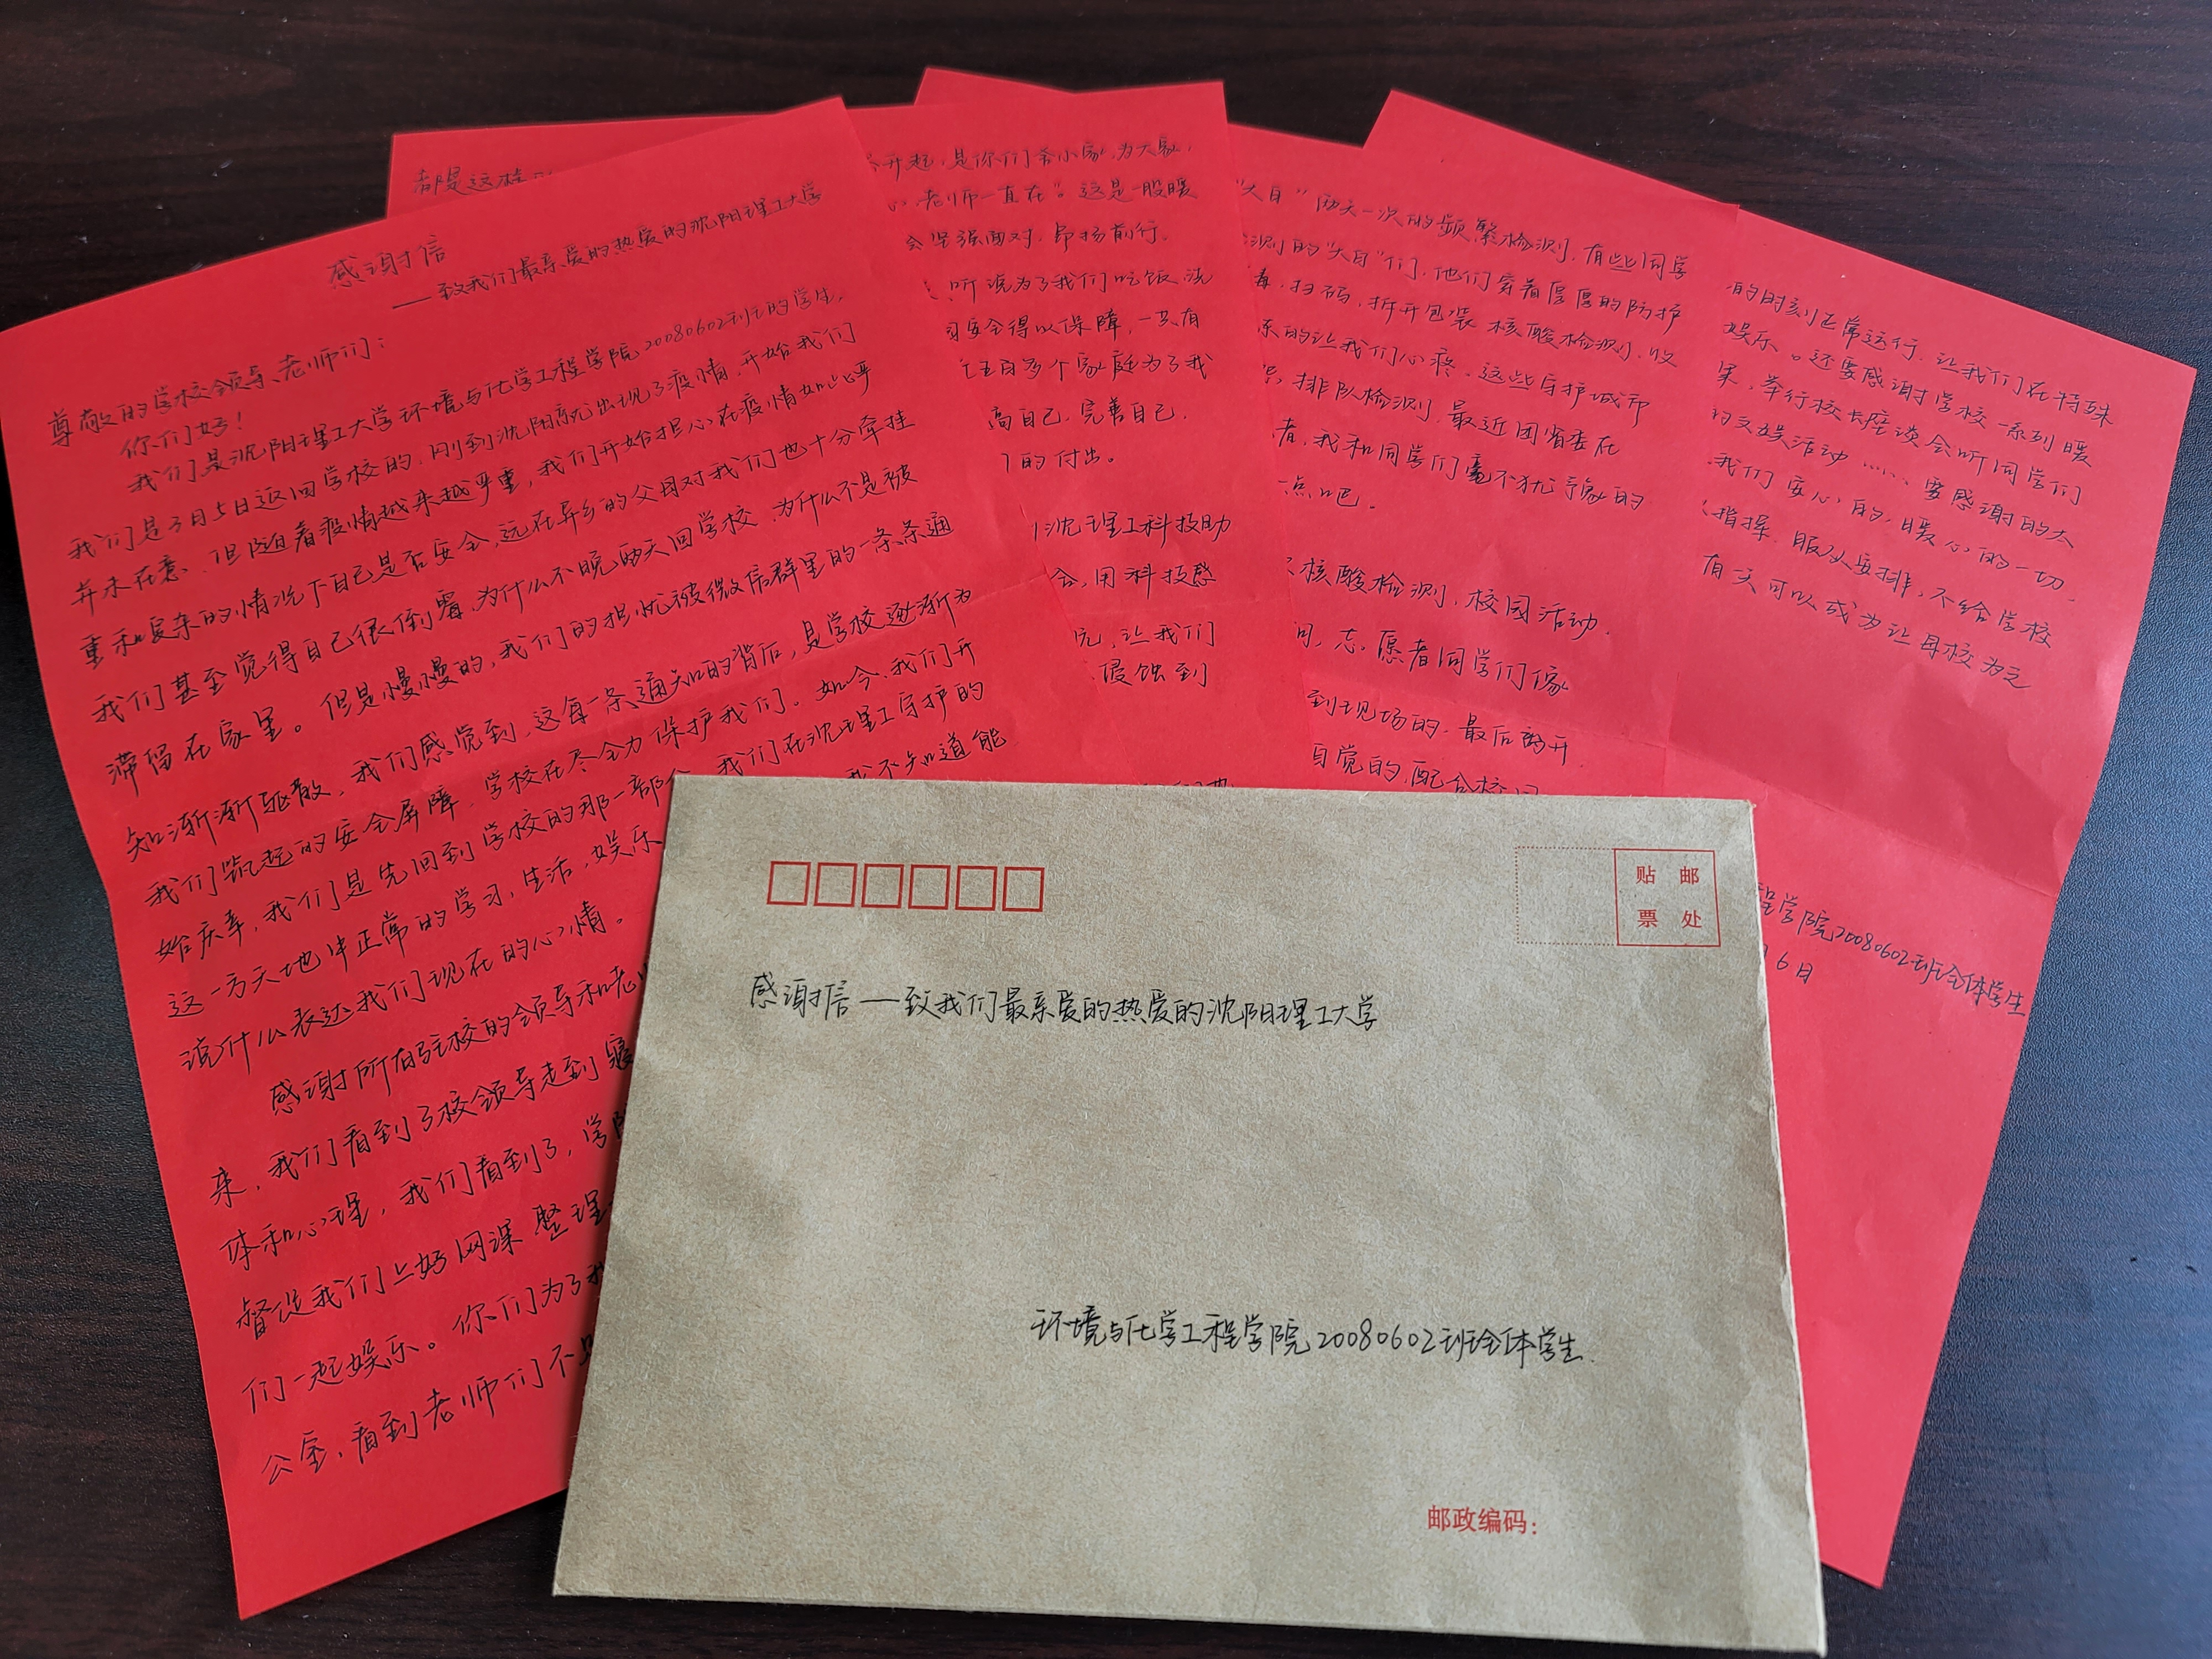 感谢信
——致我们最亲爱的热爱的沈阳理工大学
尊敬的学校领导、老师们：
你们好！
我们是沈阳理工大学环境与化学工程学院20080602班的学生，
我们是3月5日返回学校的，刚到沈阳就出现了疫情，开始我们
并未在意，但随着疫情越来越严重，我们开始担心在疫情如此严
重和复杂的情况下自己是否安全，远在异乡的父母对我们也十分牵挂
我们甚至觉得自己很倒霉，为什么不晚两天回学校，为什么不是被
滞留在家里。但是慢慢的，我们的担忧被微信群里的一条条通
知渐渐驱散，我们感觉到，这每一条通知的背后，是学校逐渐为
我们筑起的安全屏障，学校在尽全力保护我们。如今，我们开
始庆幸，我们是先回到学校的那一部分，我们在沈理工守护的
这一方天地中正常的学习，生活，娱乐 我不知道能
说什么表达我们现在的心情。
感谢所有驻校的领导和老师
来，我们看到了校领导走到寝
体和心理，我们看到了，学院
督促我们上好网课 整理
们一起娱乐。你们为了我
公室，看到老师们不
都是这样
开起，是你们舍小家，为大家，
心 老师一直在”。这是一股暖
会坚强面对，昂扬前行。
听说为了我们吃饭、洗
安全得以保障，一共有
五百多个家庭为了我
高自己，完善自己，
的付出。
沈理工科技助
会，用科技感
究，让我们
侵蚀到
“大白”两天一次的频繁检测，有些同学
测的“大白”们，他们穿着厚厚的防护
毒，扫码，拆开包装 核酸检测，收
的让我们心疼。这些守护城市
排队检测，最近团省委在
者，我和同学们毫不犹豫的
点吧。
核酸检测，校园活动，
问，志愿者同学们像
到现场的，最后离开
自觉的，配合校
的时刻正常运行，让我们在特殊
娱乐。还要感谢学校一系列暖
果，举行校长座谈会听同学们
的文娱活动……，要感谢的太
我们安心的，暖心的一切，
指挥，服从安排，不给学校
有一天可以成为让母校为之
程学院20080602班全体学生
月6日
贴 邮
票 处
感谢信——致我们最亲爱的热爱的沈阳理工大学
环境与化学工程学院20080602班全体学生
邮政编码：